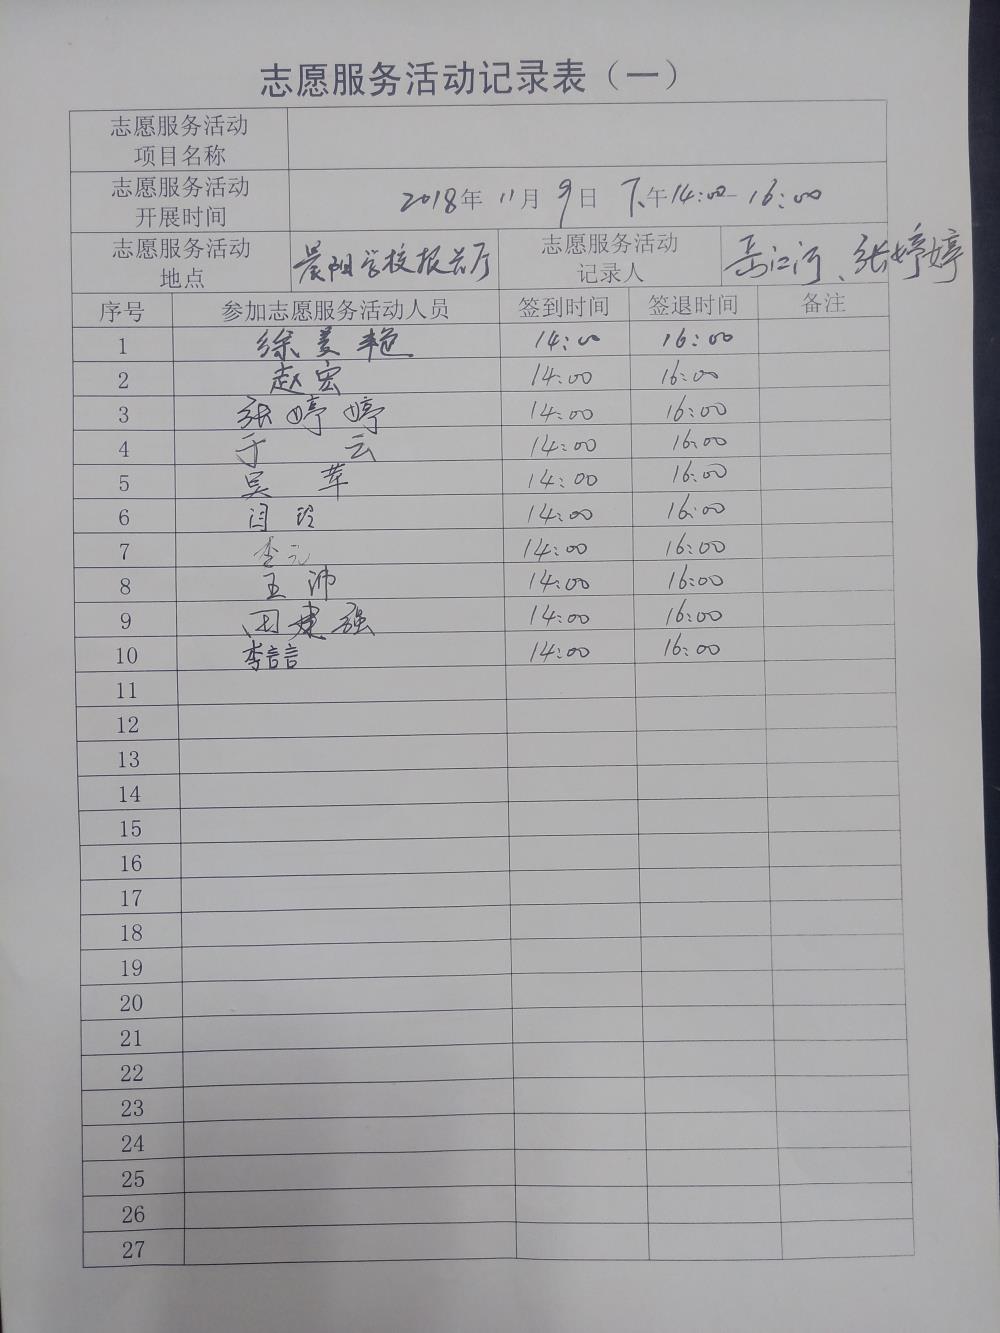 志愿服务活动记录表（一）
志愿服务活动
项目名称
志愿服务活动
开展时间
2018年 11月 9日 下午14:00-16:00
志愿服务活动
地点
晨阳学校报告厅
志愿服务活动
记录人
岳江河、张婷婷
序号 参加志愿服务活动人员 签到时间 签退时间 备注
1 徐美艳 14:00 16:00
2 赵宏 14:00 16:00
3 张婷婷 14:00 16:00
4 于云 14:00 16:00
5 吴苹 14:00 16:00
6 闫玲 14:00 16:00
7 李元 14:00 16:00
8 王沛 14:00 16:00
9 田建强 14:00 16:00
10 李言言 14:00 16:00
11
12
13
14
15
16
17
18
19
20
21
22
23
24
25
26
27